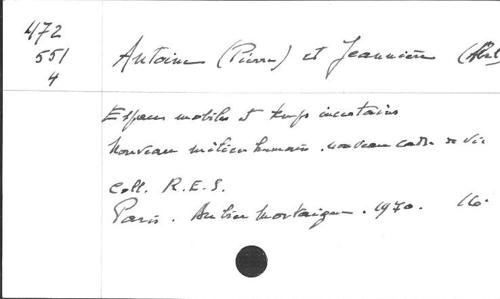 472
551
4
Antoine (Pierre) et Jeannière (Abel
Espaces mobiles et temps incertains
Nouveau milieu humain. nouveau cadre de vie
Coll. R.E.S.
Paris. Aubier Montaigne. 1970. 16.